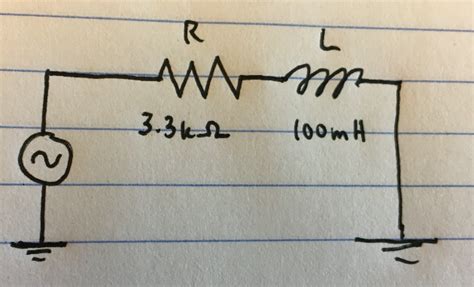 R L
3.3kΩ 100mH